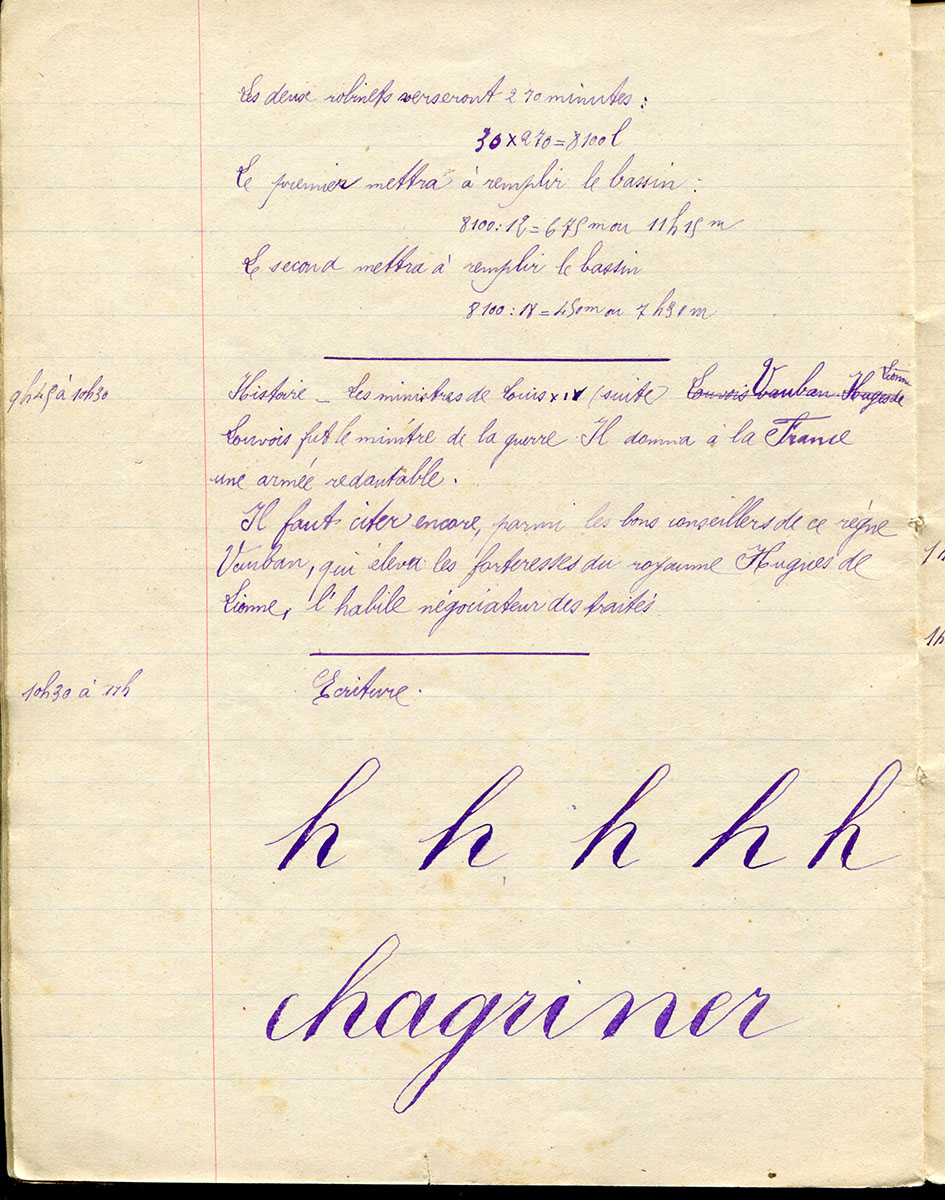 Les deux robinets verseront 270 minutes :
30 x 270 = 8100 l
Le premier mettra à remplir le bassin :
8100 : 12 = 675 m ou 11 h 15 m
Le second mettra à remplir le bassin
8100 : 18 = 450 m ou 7 h 30 m
9h45 à 10h30
Histoire – Les ministres de Louis XIV (suite Louvois Vauban Hugues de Lionne
Louvois fut le minitre de la guerre Il donna à la France
une armée redoutable.
Il faut citer encore, parmi les bons conseillers de ce règne
Vauban, qui éleva les forteresses du royaume Hugues de
Lionne, l'habile négociateur des traités
10h30 à 11h
Ecriture.
h h h h h
chagriner
1h